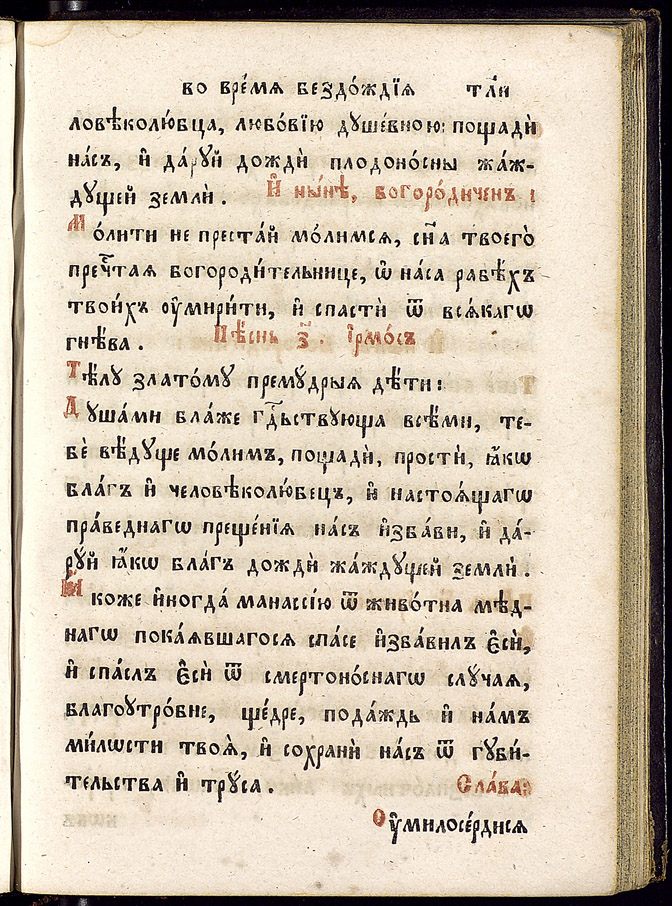 во вре́мѧ бездо́ждїѧ тл҃и
ловѣколю́бца, любо́вїю душе́вною: пощадѝ
на́съ, и҆ да́руй дождѝ плодоно́сны жа́ж-
дущей землѝ. И҆ ны́нѣ, богоро́диченъ :
Мо́лити не преста́й мо́лимсѧ, сн҃а твоего̀
преч҃таѧ богороди́тельнице, ѡ҆ на́са рабѣ́хъ
твои́хъ оу҆мири́ти, и҆ спастѝ ѿ всѧ́кагѡ
гнѣ́ва. Пѣ́снь з҃. І҆рмо́съ
Тѣ́лу злато́му прему́дрыѧ дѣ́ти:
Душа́ми бла́же гд҇ьствующа всѣ́ми, те-
бѐ вѣ́дуще мо́лимъ, пощадѝ, простѝ, ꙗ҆́кѡ
бла́гъ и҆ человѣколю́бецъ, и҆ настоѧ́щагѡ
пра́веднагѡ преще́нїѧ на́съ и҆зба́ви, и҆ да́-
руй ꙗ҆́кѡ бла́гъ дождѝ жа́ждущей землѝ.
Ꙗ҆коже и҆ногда́ манассі́ю ѿ живо́тна мѣ́д-
нагѡ пока́ѧвшагосѧ спа́се и҆зба́вилъ є҆сѝ,
и҆ спа́слъ є҆сѝ ѿ смертоно́снагѡ слу́чаѧ,
благоꙋтро́бне, ще́дре, пода́ждь и҆ на́мъ
ми́лѡсти твоѧ̀, и҆ сохранѝ на́съ ѿ губи́-
тельства и҆ тру́са. Сла́ва:
Оу҆милосе́рдисѧ